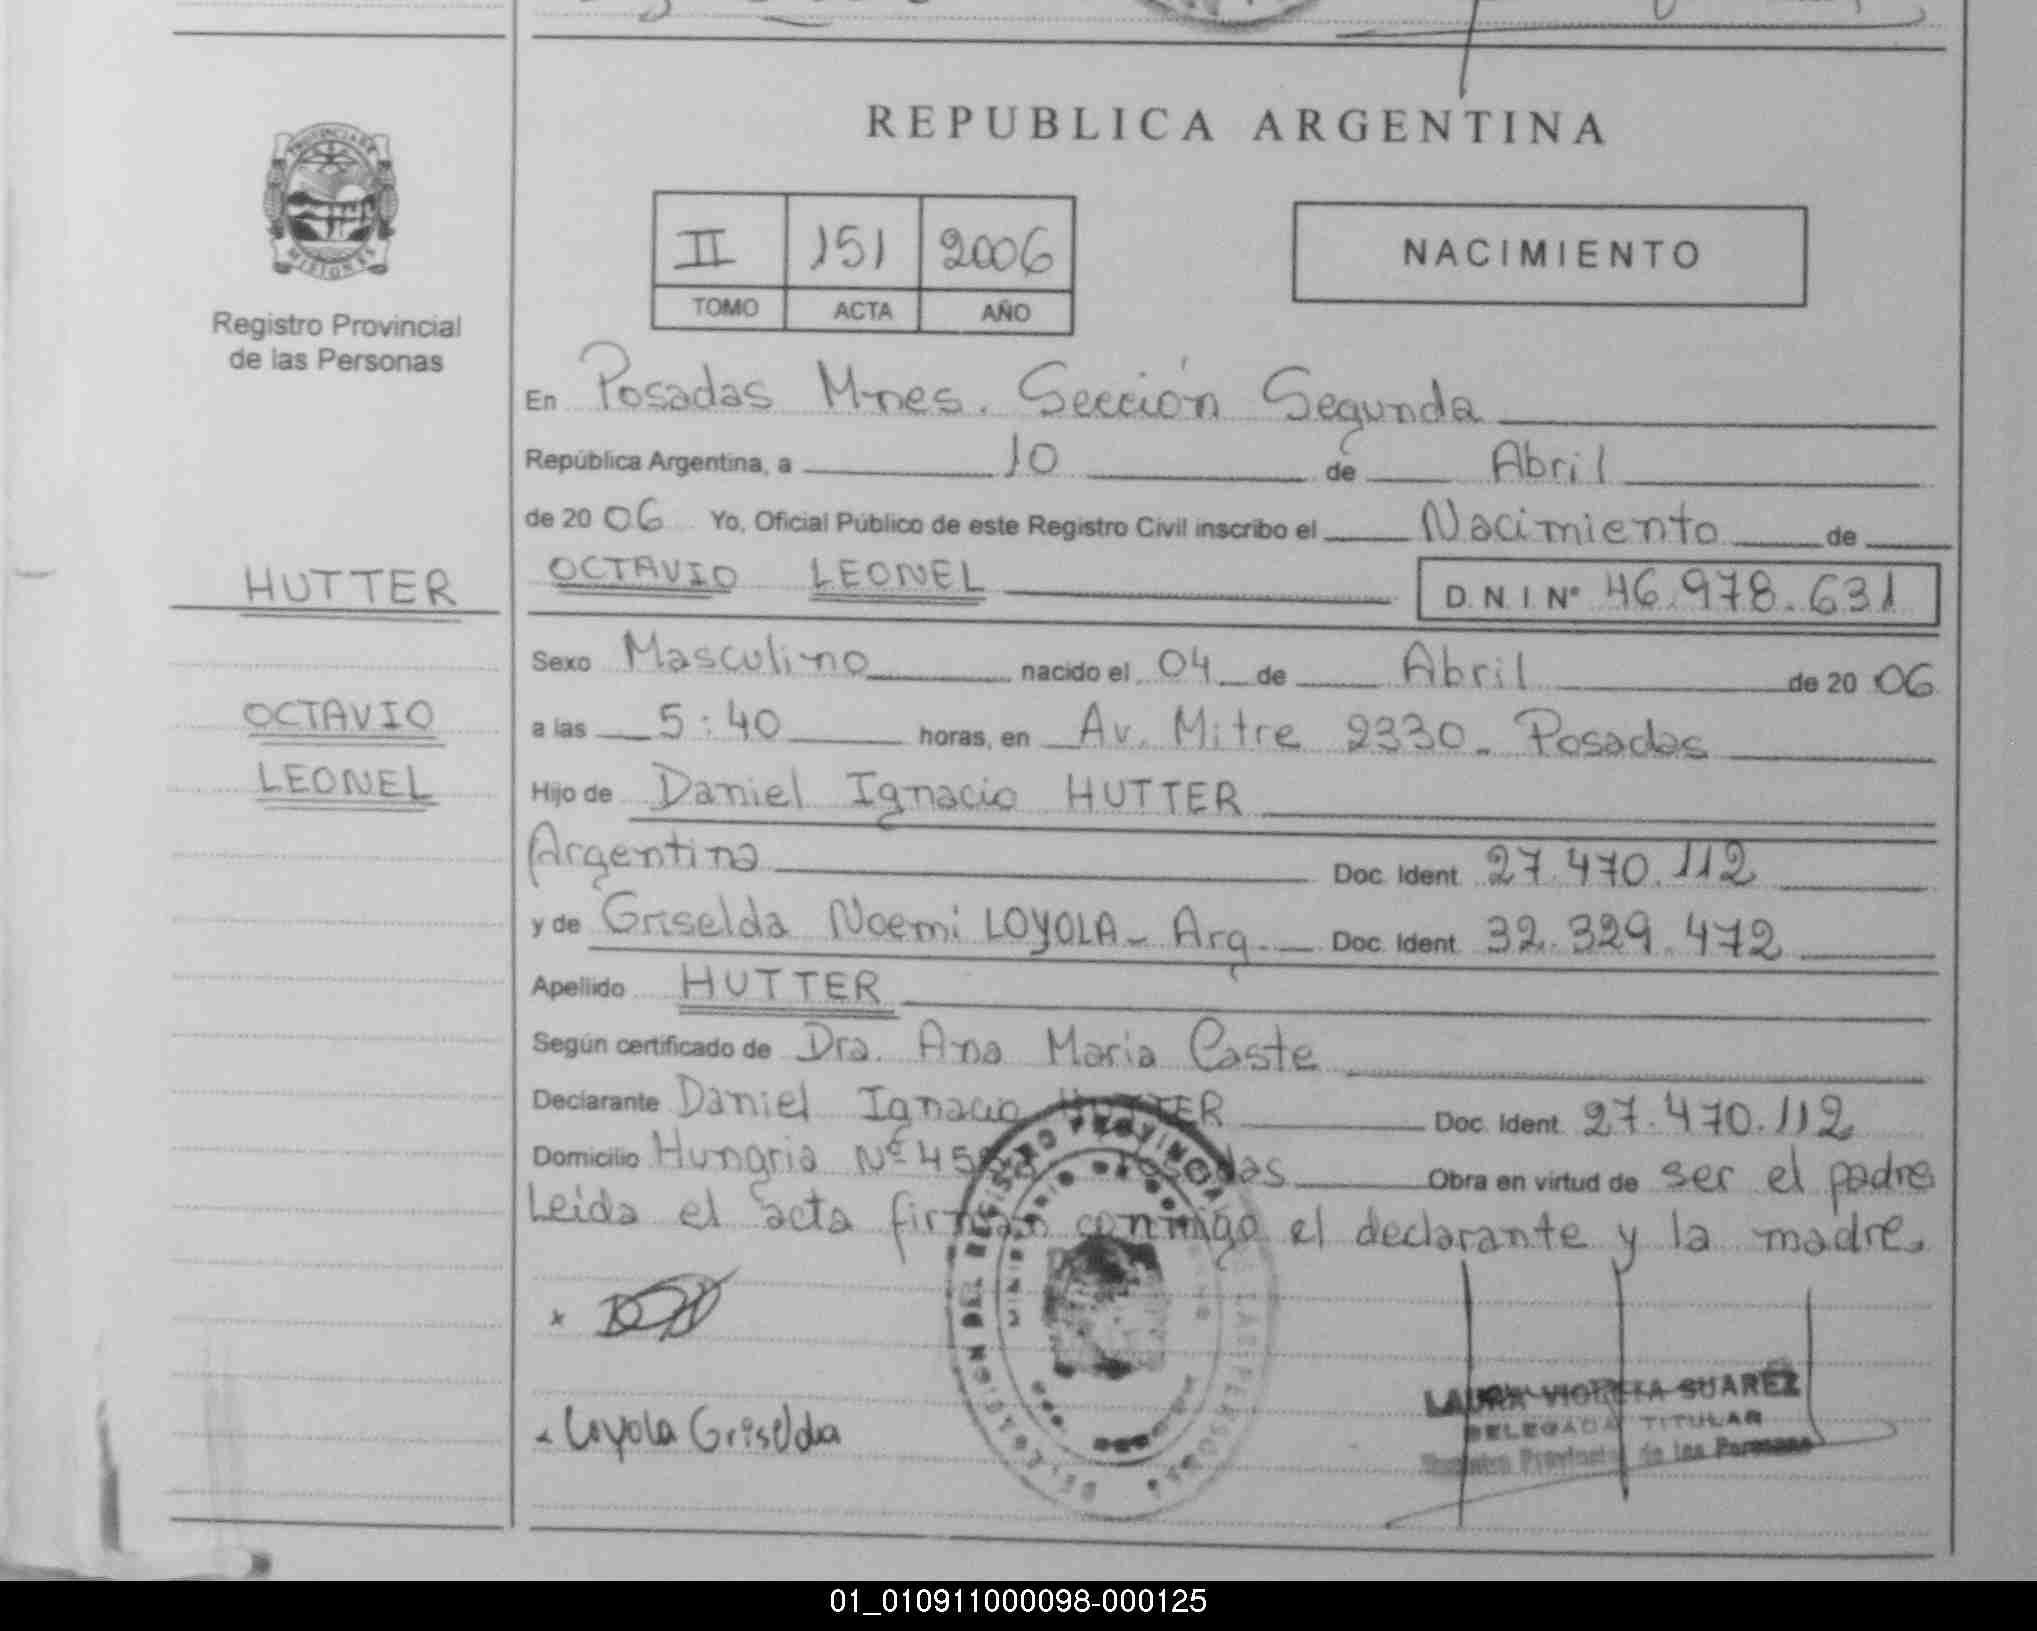 REPUBLICA ARGENTINA
PROVINCIA DE
MISIONES
Registro Provincial
de las Personas
II 151 2006
TOMO ACTA AÑO
NACIMIENTO
En Posadas Mnes. Sección Segunda
República Argentina, a 10 de Abril
de 2006 Yo, Oficial Público de este Registro Civil inscribo el Nacimiento de
HUTTER
OCTAVIO LEONEL D.N.I Nº 46.978.631
Sexo Masculino nacido el 04 de Abril de 2006
OCTAVIO
a las 5:40 horas, en Av. Mitre 2330. Posadas
LEONEL
Hijo de Daniel Ignacio HUTTER
Argentino Doc. Ident. 27.470.112
y de Griselda Noemi LOYOLA - Arg. Doc. Ident. 32.329.472
Apellido HUTTER
Según certificado de Dra. Ana Maria Caste
Declarante Daniel Ignacio HUTTER Doc. Ident. 27.470.112
Domicilio Hungria Nº Posadas Obra en virtud de ser el padre
Leída el acta firman conmigo el declarante y la madre.
DELEGACION DEL REGISTRO PROVINCIAL DE LAS PERSONAS
x
x Loyola Griselda
LAURA VIOLETA SUAREZ
DELEGADA TITULAR
Registro Provincial de las Personas
01_010911000098-000125